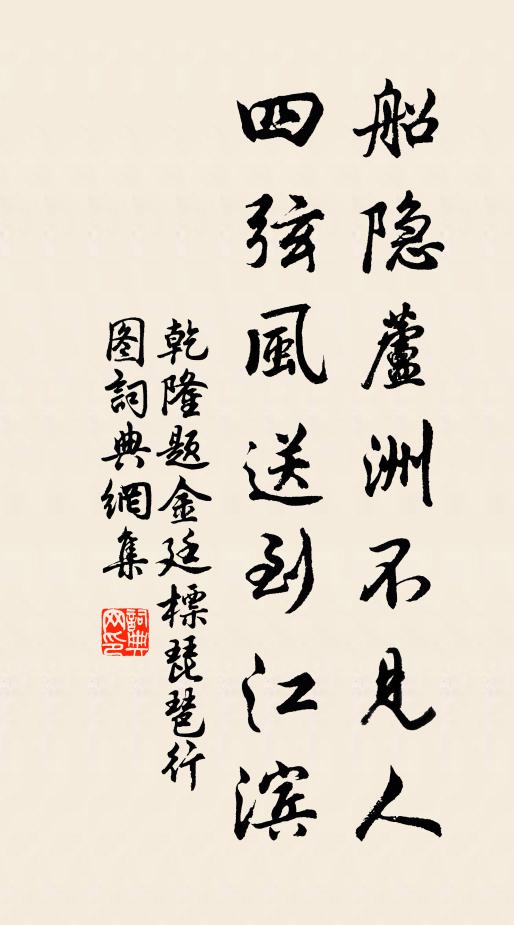 船隐蘆洲不见人
四弦風送到江滨
乾隆题金廷標琵琶行
图詞典網集
詞典网印